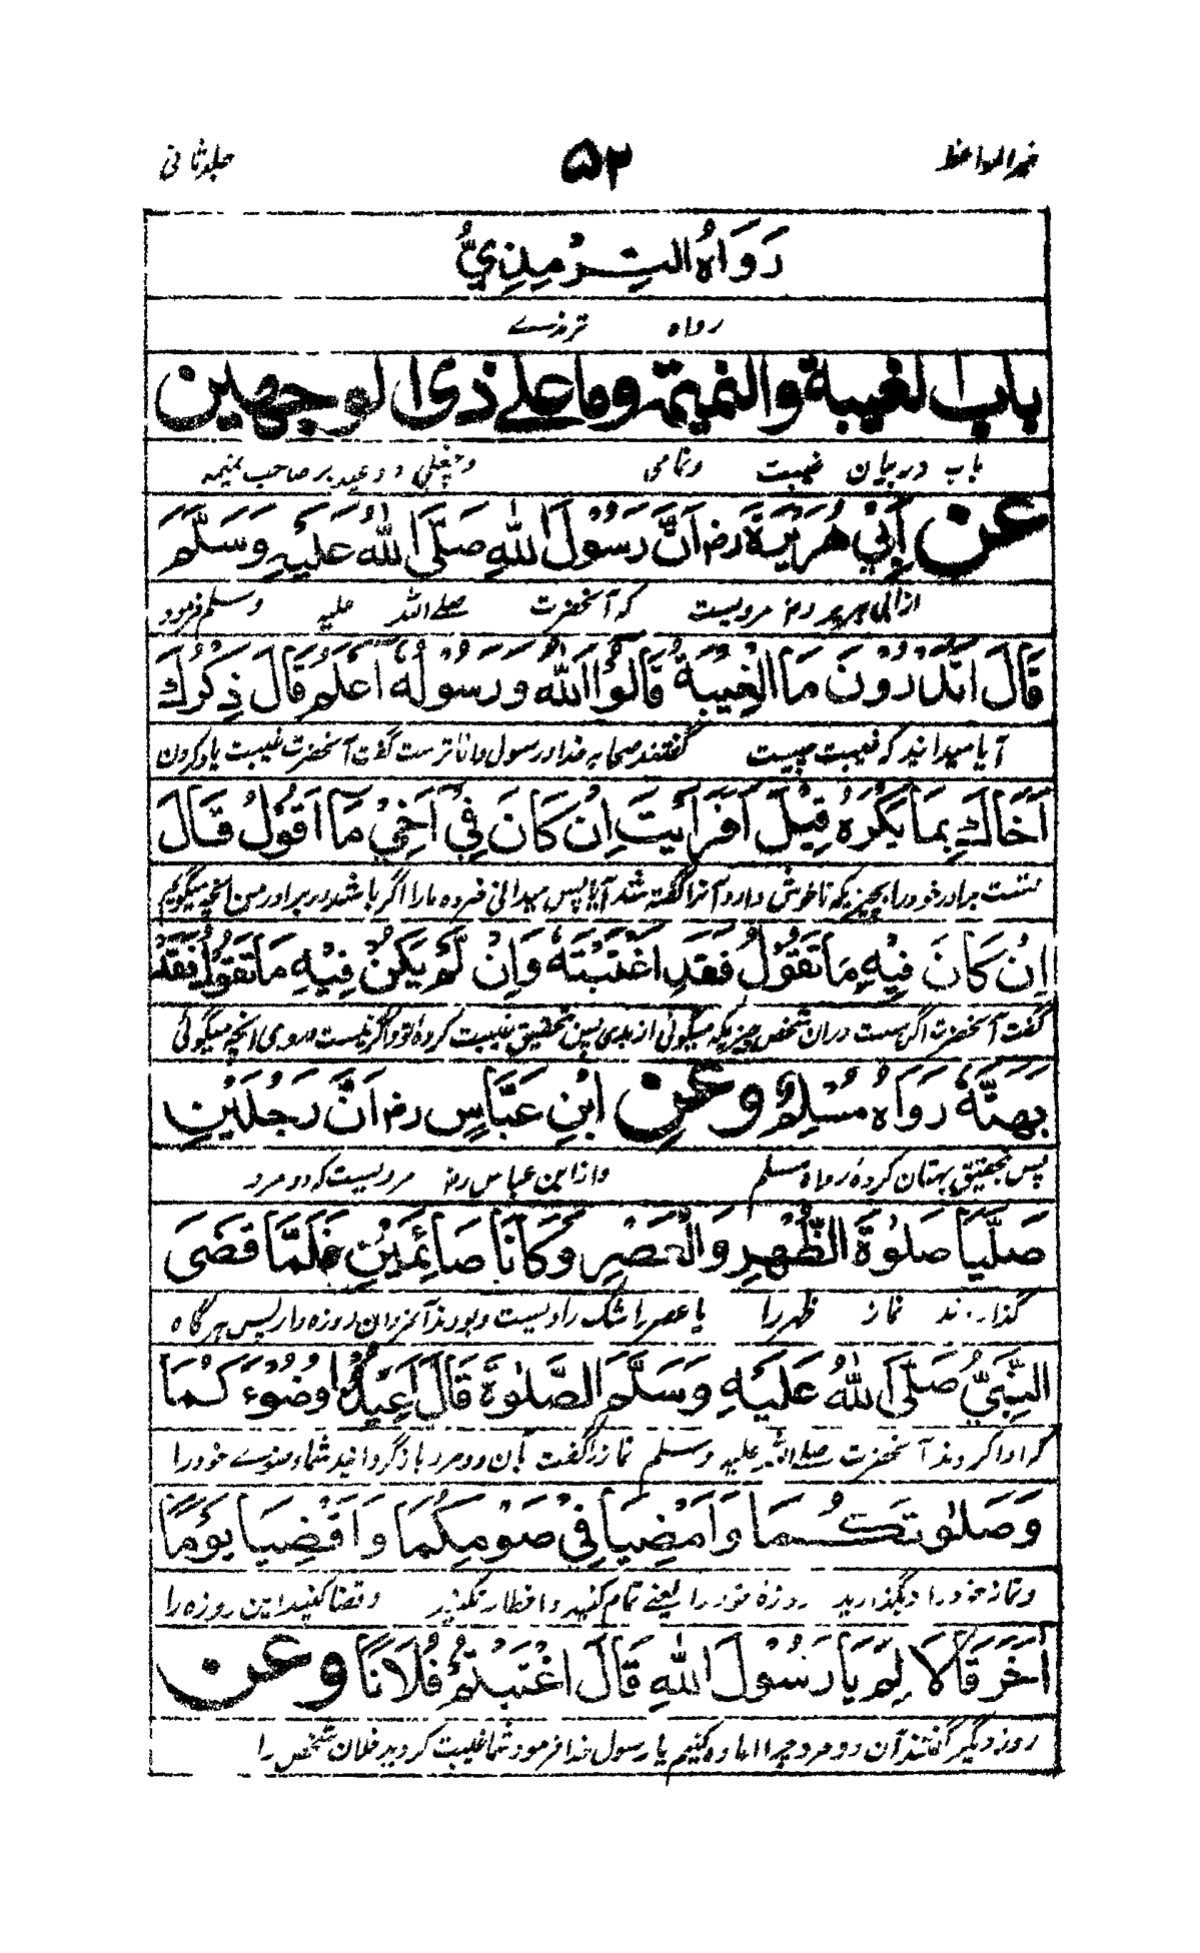 خیر المواعظ ۵۳ جلد ثانی
رَوَاهُ التِّرْمِذِيُّ
رواه ترمذے
باب الغيبة والنميمة وما على ذى الوجهين
باب در بیان غیبت و نمامی و چغلی و وعید بر صاحب نمیمه
عن أَبِي هُرَيْرَةَ رض أَنَّ رَسُوْلَ اللهِ صَلَّى اللهُ عَلَيْهِ وَسَلَّمَ
از ابی هریره رض مرویست که آنحضرت صلے الله علیه وسلم فرمود
قَالَ اتَدْرُوْنَ مَا الْغِيْبَةُ قَالُوْا اللهُ وَرَسُوْلُهُ أَعْلَمُ قَالَ ذِكْرُكَ
آیا میدانید که غیبت چیست گفتند صحابه خدا و رسول دانا ترست گفت آنحضرت غیبت یاد کردن
أَخَاكَ بِمَا يَكْرَهُ قِيْلَ أَفَرَأَيْتَ اِنْ كَانَ فِيْ أَخِيْ مَا أَقُوْلُ قَالَ
تست برادر خود را بچیزیکه ناخوش دارد آنرا گفته شد آیا پس میدانی خبر ده مارا اگر باشد در برادر من آنچه میگویم
اِنْ كَانَ فِيْهِ مَا تَقُوْلُ فَقَدِ اغْتَبْتَهُ وَاِنْ لَّمْ يَكُنْ فِيْهِ مَا تَقُوْلُ فَقَدْ
گفت آنحضرت اگر هست دران شخص چیزیکه میگوئی از بدی پس تحقیق غیبت کردهٔ تو و اگر نیست در وی آنچه میگوئی
بَهَتَّهُ رَوَاهُ مُسْلِمٌ وعَنِ ابْنِ عَبَّاسٍ رض اَنَّ رَجُلَيْنِ
پس تحقیق بهتان کردهٔ رواه مسلم و از ابن عباس رض مرویست که دو مرد
صَلَّيَا صَلٰوةَ الظُّهْرِ وَالْعَصْرِ وَكَانَا صَائِمَيْنِ فَلَمَّا قَضَى
گذاردند نماز ظهر را یا عصر را شک راویست و بودند آن مردان روزه دار پس هرگاه
النَّبِيُّ صَلَّى اللهُ عَلَيْهِ وَسَلَّمَ الصَّلٰوةَ قَالَ أَعِيْدُوْا وُضُوْءَكُمَا
که ادا کردند آنحضرت صلے الله علیه وسلم نماز را گفت بآن دو مرد باز گردانید شما وضوے خود را
وَصَلٰوتَكُمَا وَامْضِيَا فِيْ صَوْمِكُمَا وَاقْضِيَا يَوْمًا
و نماز خود را دیگذارید روزهٔ خود را یعنے تمام کنید و افطار نکنید و قضا کنید این روزه را
أٰخَرَ قَالَا لِمَ يَا رَسُوْلَ اللهِ قَالَ اغْتَبْتُمْ فُلَانًا وعن
روز دیگر گفتند آن دو مرد چرا اعاده کنیم یا رسول خدا فرمود شما غیبت کردید فلان شخص را